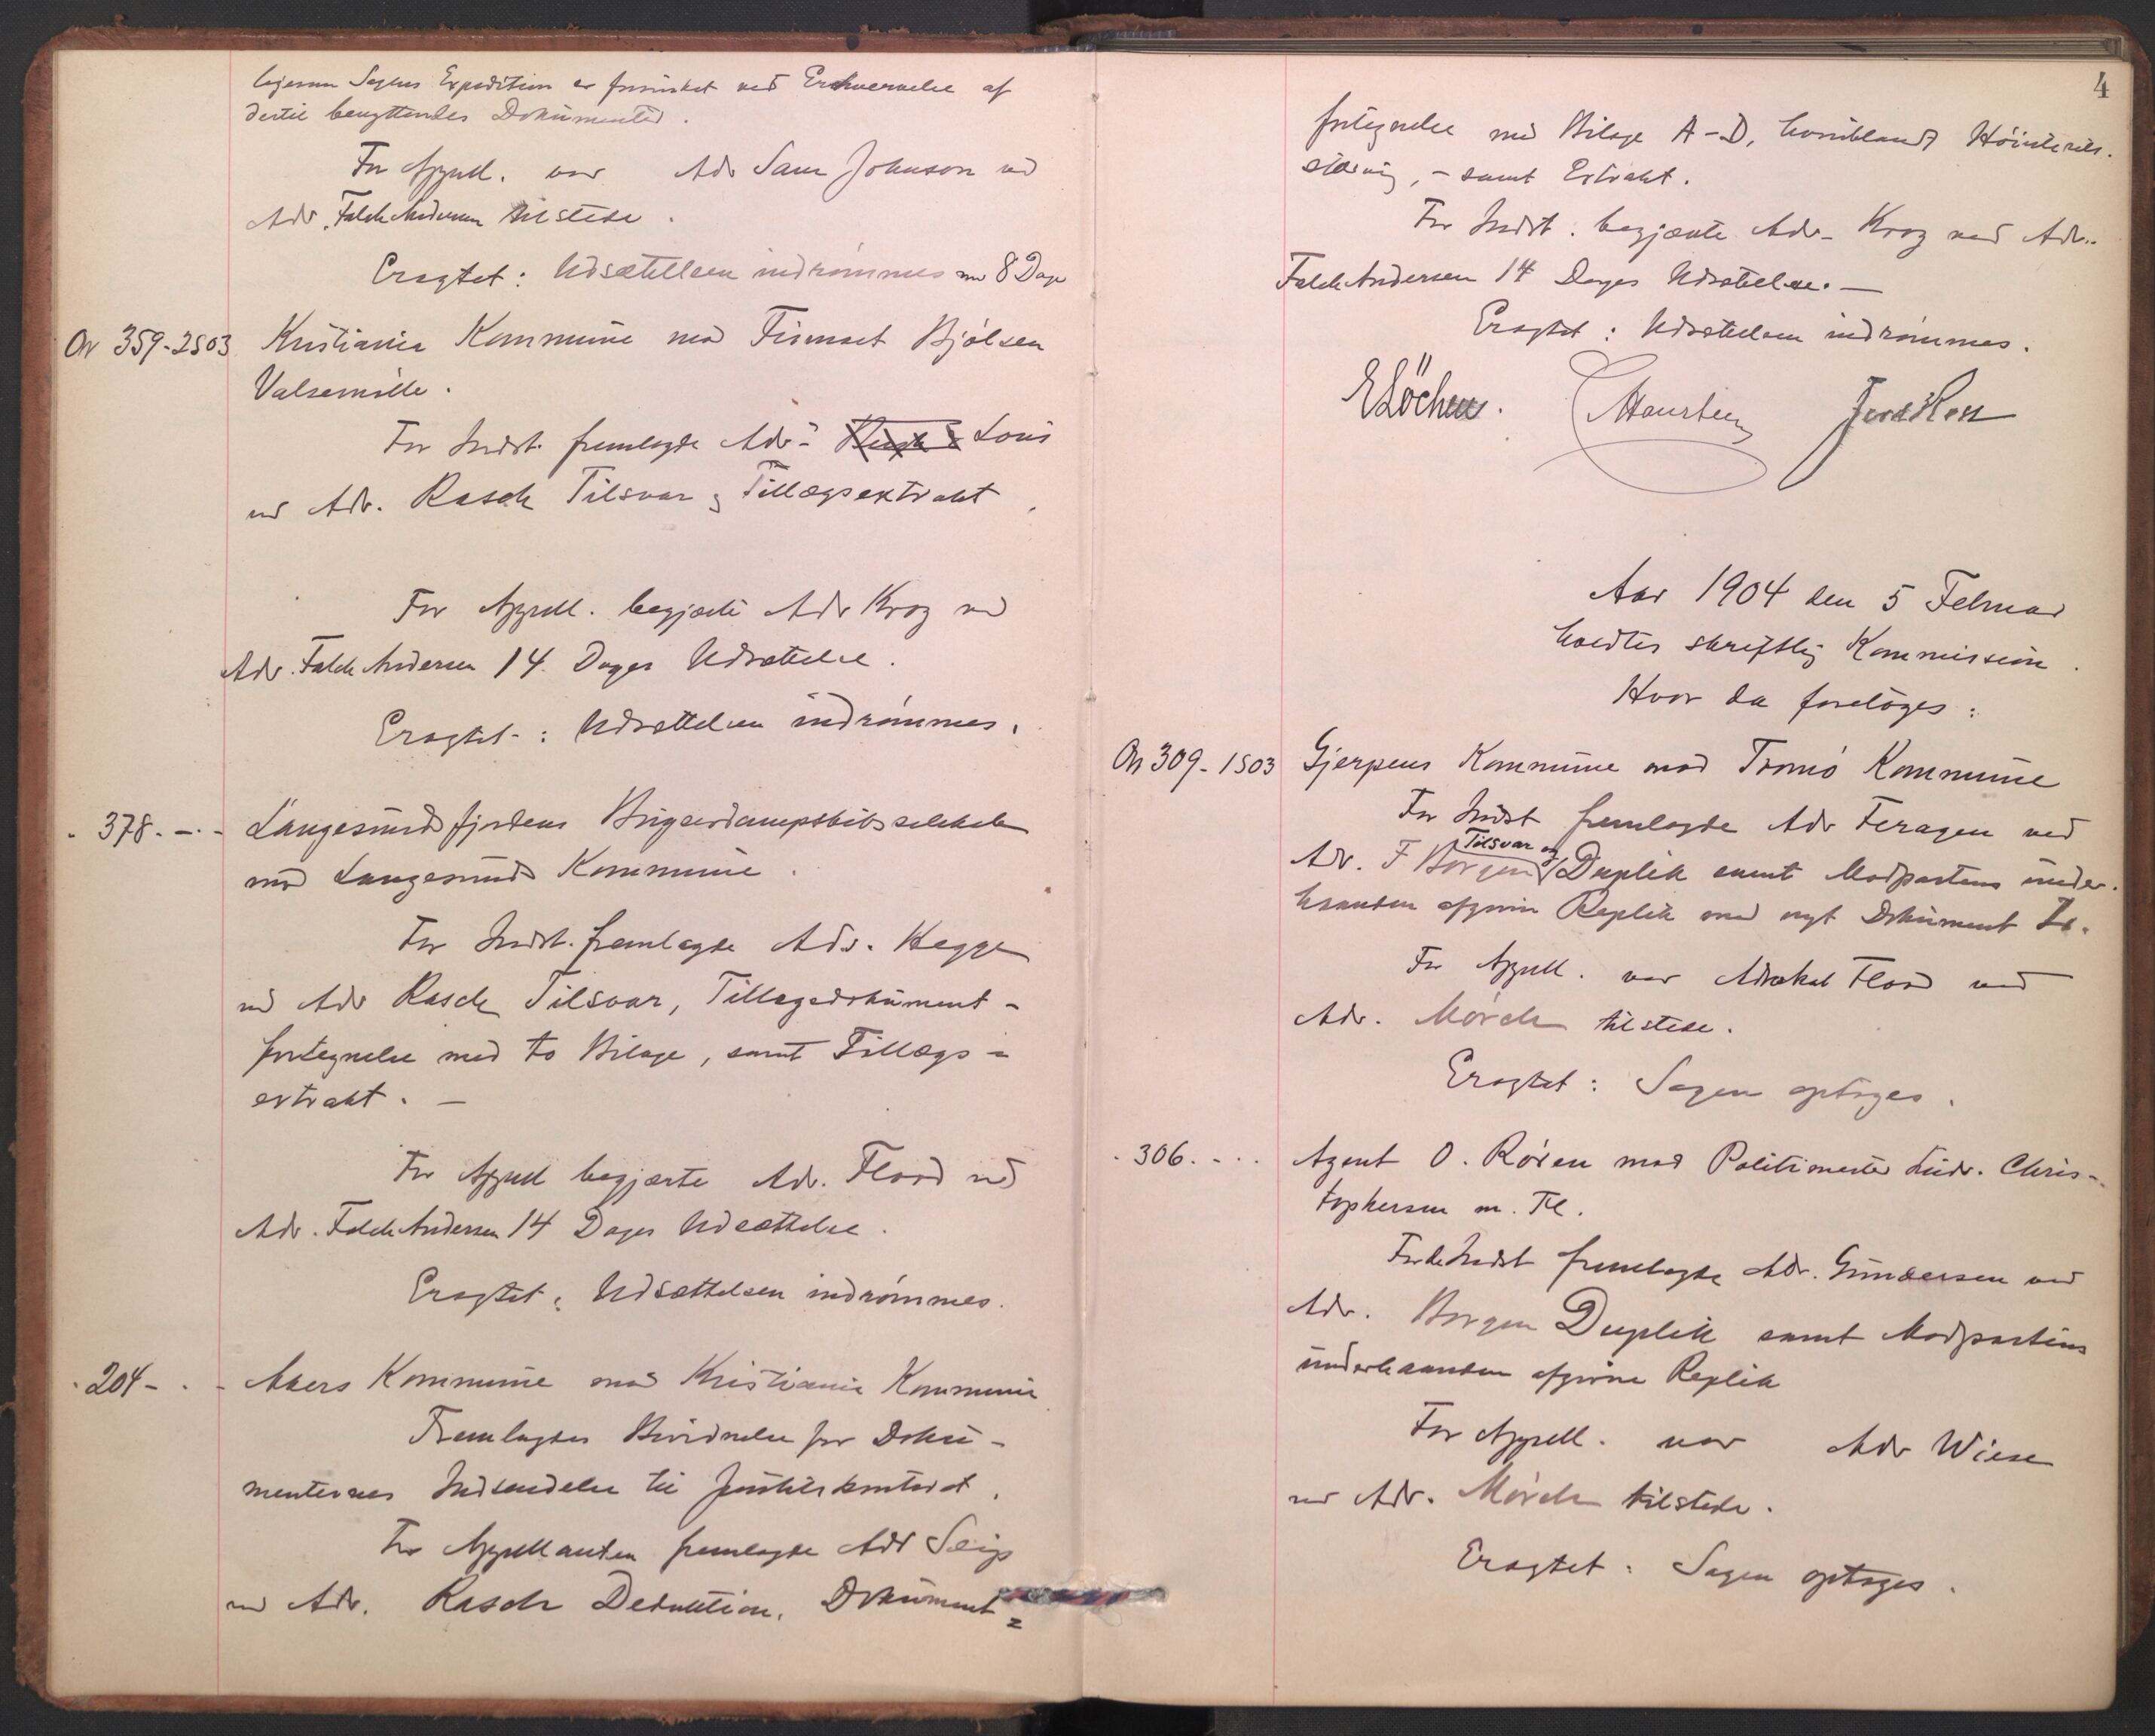 Sagens Expedition er forsinket ved Erhvervelse af
dertil benyttendes Dokumenter.
For Appell. var Adv Sam Johnson ved
Adv. Falch Andersen tilstede.
Eragtet: Udsættelsen indrømmes m 8 Dage
On 359-2S03 Kristiania Kommune mod Firmaet Bjölsen
Valsemölle.
For Indst. fremlagde Adv. Lous
ved Adv. Rasch Tilsvar og Tillægsextrakt.
For Appell. begjærte Adv Krog ved
Adv. Falch Andersen 14 Dages Udsættelse.
Eragtet: Udsættelsen indrømmes.
- 378. -.- Langesundsfjordens Bugserdampskibsselskab
mod Langesunds Kommune.
For Indst. fremlagde Adv. Hegge
ved Adv Rasch Tilsvar, Tillægsdokument-
fortegnelse med to Bilage, samt Tillægs-
extrakt. -
For Appell begjærte Adv. Flood ved
Adv. Falch Andersen 14 Dages Udsættelse.
Eragtet: Udsættelsen indrømmes.
. 204 - . - Akers Kommune mod Kristiania Kommune
Fremlagdes Bevidnelse for Doku-
menternes Indsendelse til Justitskontoret.
For Appellanten fremlagde Adv
ved Adv. Rasch Deduktion, Dokument=
4
fortegnelse med Bilage A-D, hvoriblandt Höiesterets-
, - samt Extrakt.
For Indst. begjærte Adv. Krog ved Adv.
Falch Andersen 14 Dages Udsættelse. -
Eragtet: Udsættelsen indrømmes.
E Löchen.
Aar 1904 den 5 Februar
holdtes skriftlig Kommission.
Hvor da foretoges:
On 309-1S03 Gjerpens Kommune mod Tromö Kommune
For Indst fremlagde Adv Feragen ved
Tilsvar og
Adv. F Borgen Duplik samt Modpartens under-
haanden afgivne Replik med nyt Dokument
For Appell. var Advokat Flood ved
Adv. Mörch tilstede.
Eragtet: Sagen optoges.
. 306. - . . Agent O. Rören mod Politimester Ludv. Chris-
tophersen m. Fl.
For de Indst fremlagde Adv. Gundersen ved
Adv. Borgen Duplik samt Modpartens
underhaanden afgivne Replik
For Appell. var Adv Wiese
ved Adv. Mörch tilstede.
Eragtet: Sagen optoges.